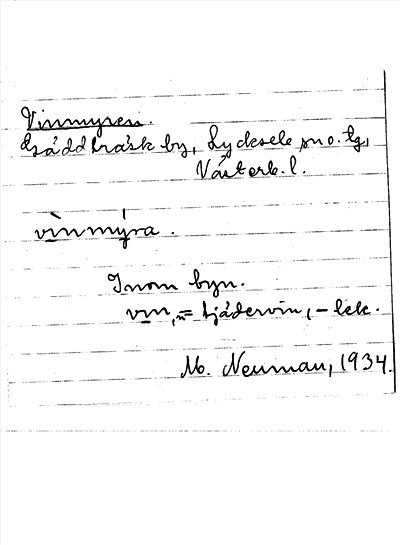 Vinmyren.
Gäddträsk by, Lycksele sn o. tg,
Västerb. l.
vìnmýra.
Inom byn.
vin, n = tjädervin, - lek.
M. Neuman, 1934.